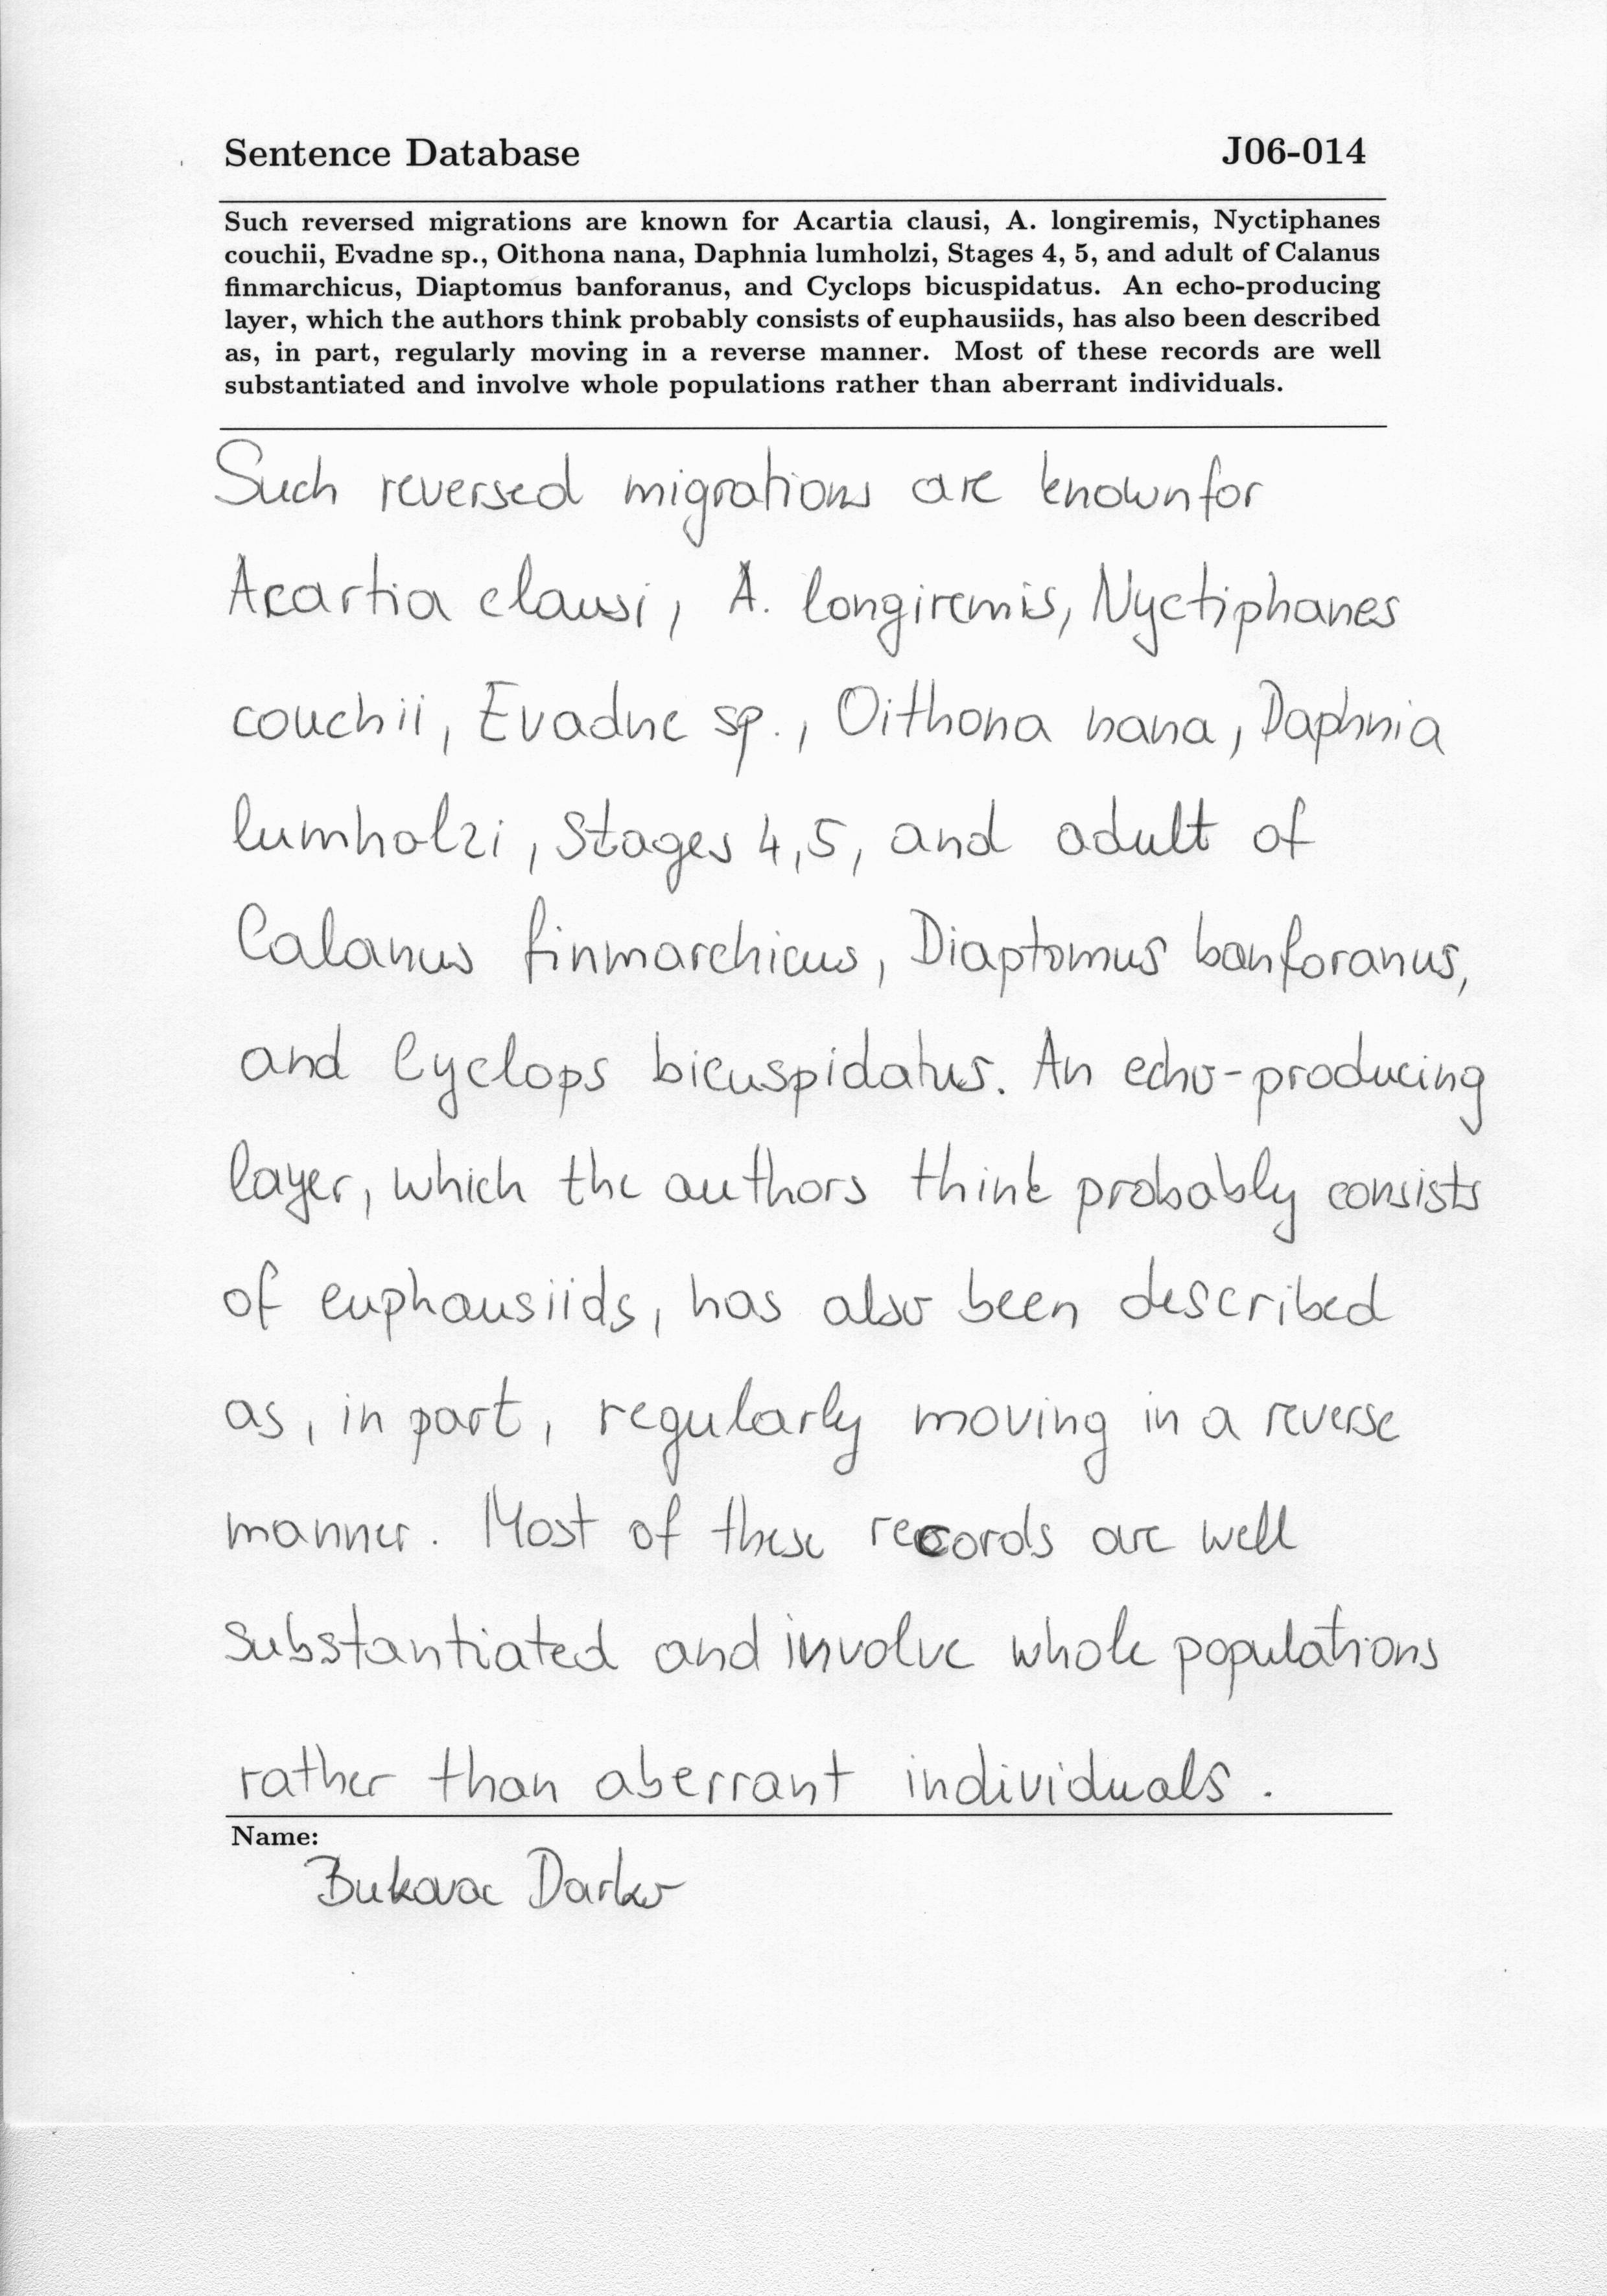 Sentence Database J06-014
Such reversed migrations are known for Acartia clausi, A. longiremis, Nyctiphanes
couchii, Evadne sp., Oithona nana, Daphnia lumholzi, Stages 4, 5, and adult of Calanus
finmarchicus, Diaptomus banforanus, and Cyclops bicuspidatus. An echo-producing
layer, which the authors think probably consists of euphausiids, has also been described
as, in part, regularly moving in a reverse manner. Most of these records are well
substantiated and involve whole populations rather than aberrant individuals.
Such reversed migrations are known for
Acartia clausi, A. longiremis, Nyctiphanes
couchii, Evadne sp., Oithona nana, Daphnia
lumholzi, Stages 4,5, and adult of
Calanus finmarchicus, Diaptomus banforanus,
and Cyclops bicuspidatus. An echo-producing
layer, which the authors think probably consists
of euphausiids, has also been described
as, in part, regularly moving in a reverse
manner. Most of these records are well
substantiated and involve whole populations
rather than aberrant individuals.
Name:
Bukovac Darko